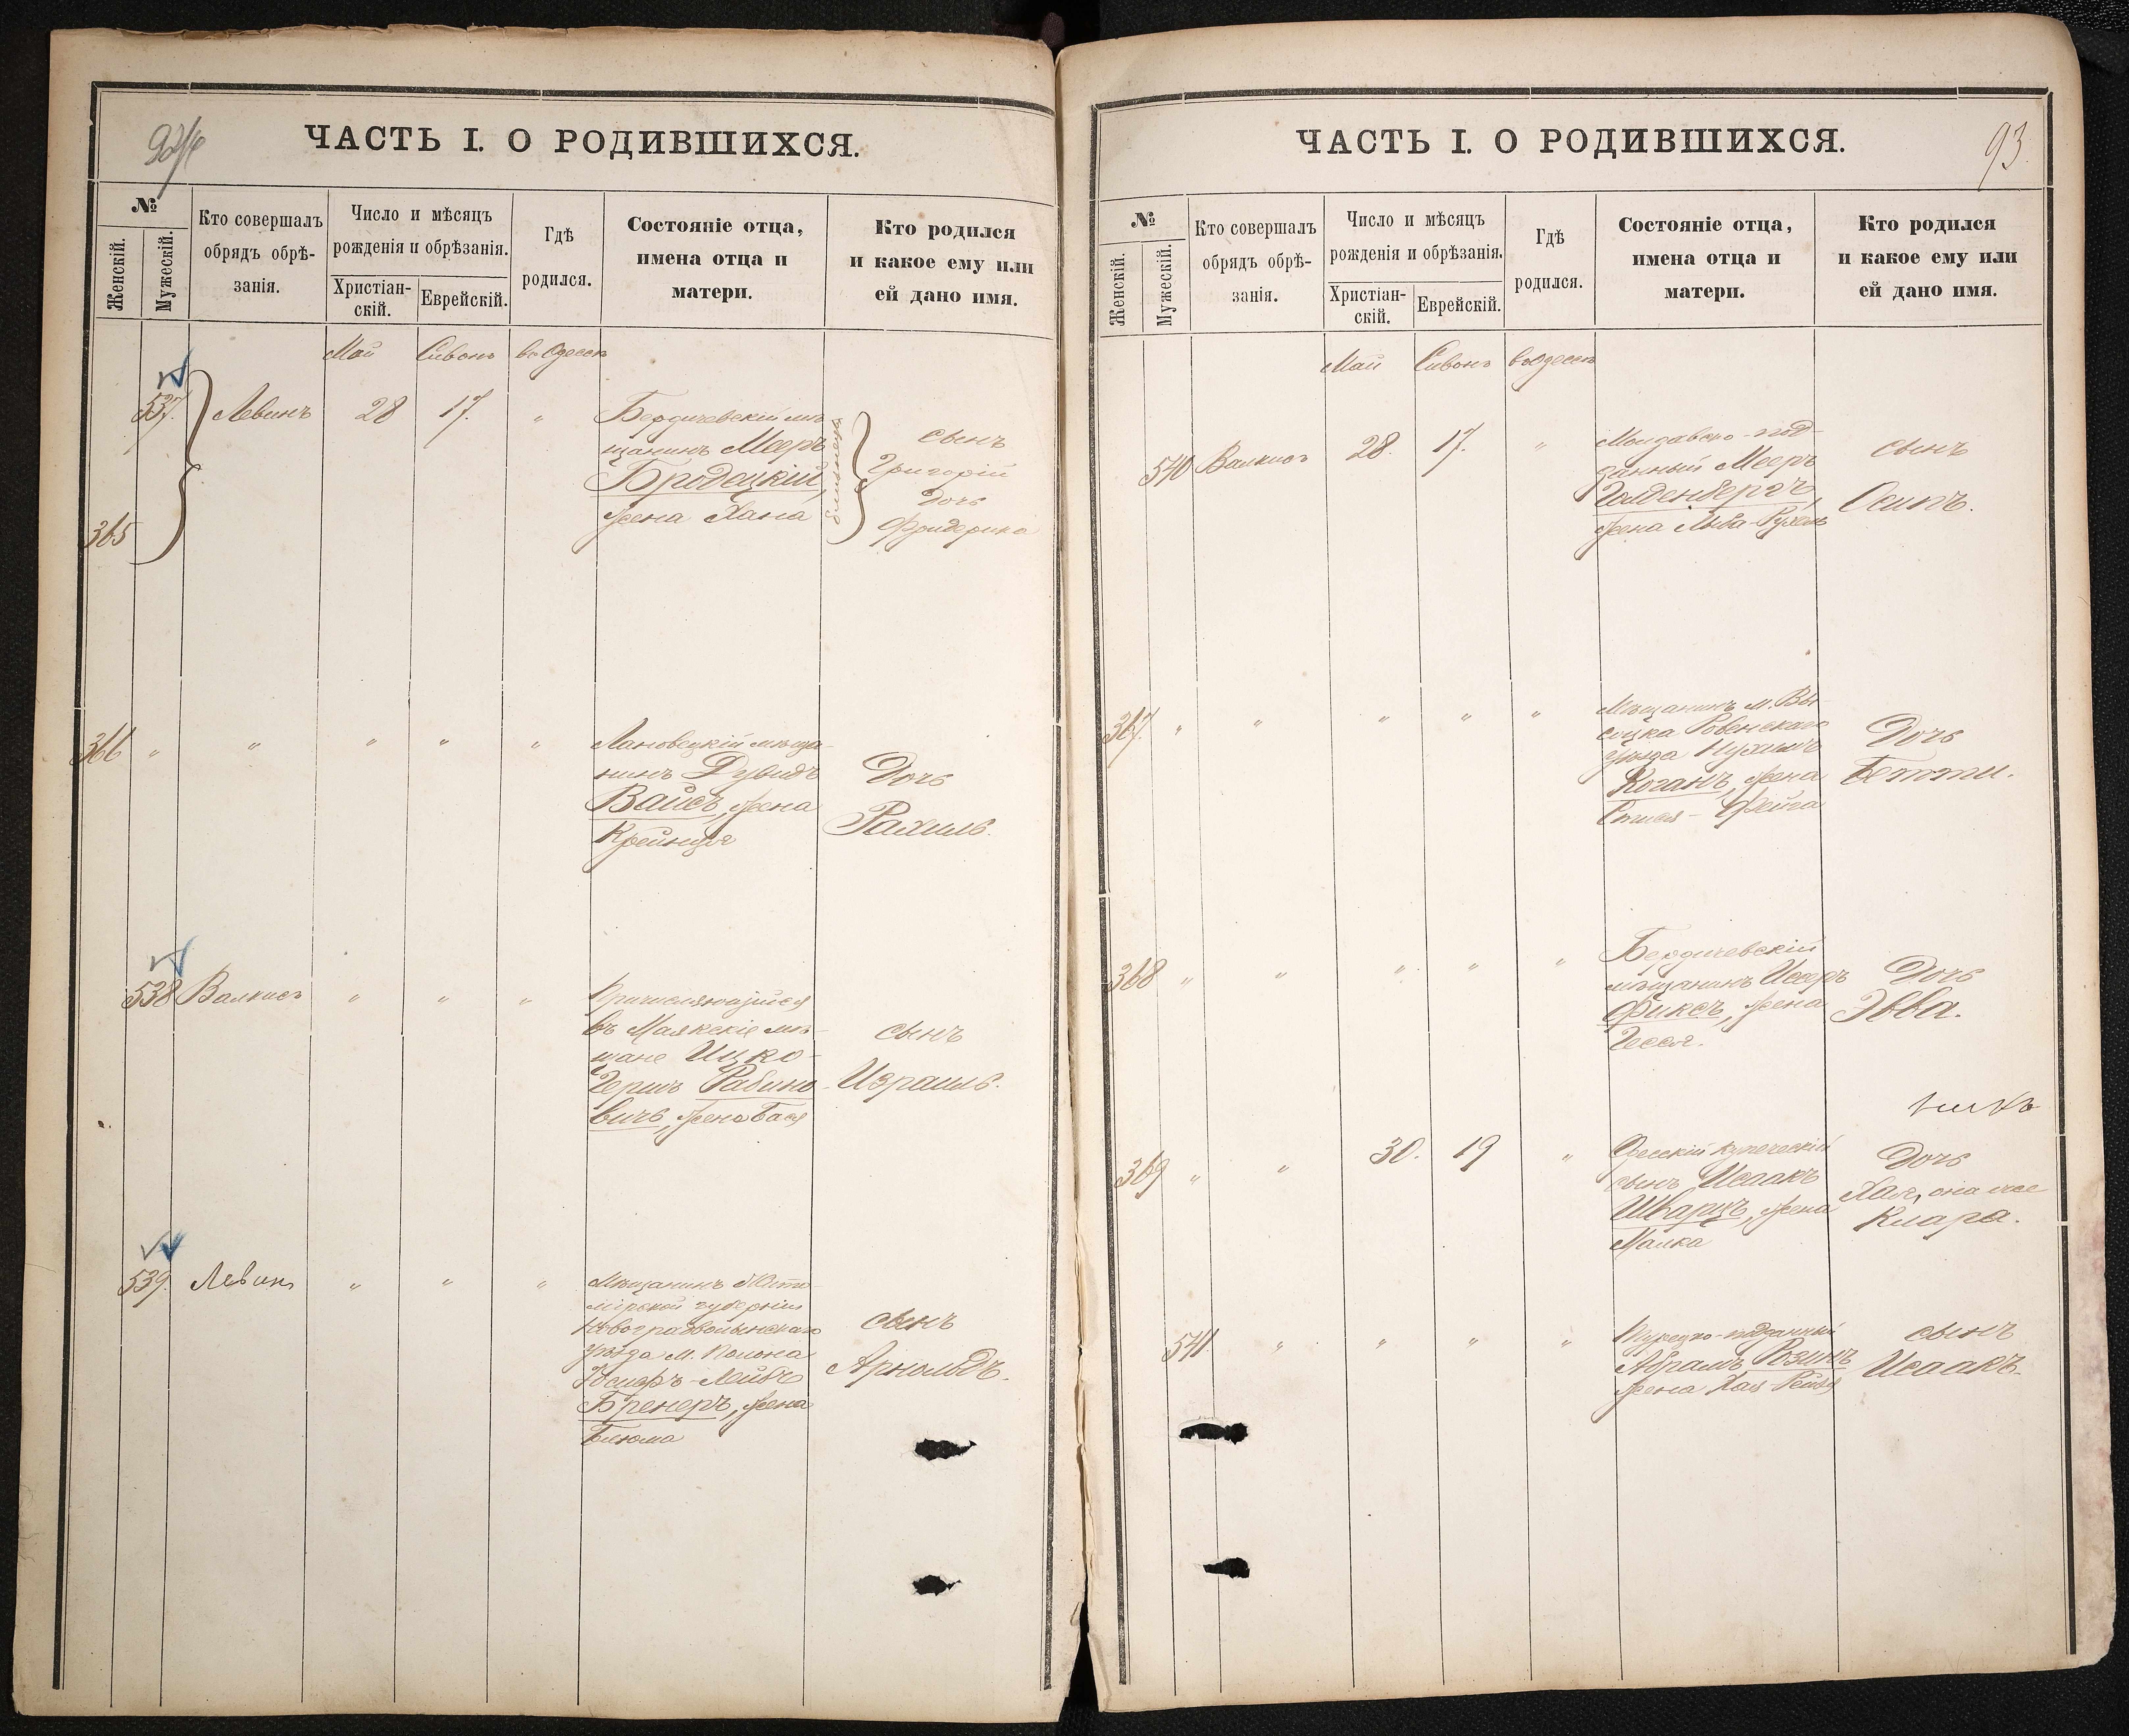 ЧАСТЬ I. О РОДИВШИХСЯ.
№
Женскій.
Мужескій.
Кто совершалъ
обрядъ обрѣ-
занія.
Число и мѣсяцъ
рожденія и обрѣзанія.
Христіан-
скій.
Еврейскій.
Гдѣ
родился.
Состояніе отца,
имена отца и
матери.
Кто родился
и какое ему или
ей дано имя.
Май Сивонъ въ Одессѣ
537. Левинъ 28 17. "
365
Бердичевскій мѣ-
щанинъ Мееръ
Бродецкій,
жена Хана
близнецы
сынъ
Григорій
дочь
Фридерика
366 " " " " "
Лановецкій мѣща-
нинъ Дувидъ
Вайсъ, жена
Крейнця
Дочь
Рахиль.
538 Валкисъ " " "
Причисляющійся
въ Маякскіе мѣ-
щане Ицко-
Гершъ Рабино-
вичъ, жена Бася
сынъ
Израиль.
539. Левинъ " " "
Мѣщанинъ Жито-
мірской губерніи
Новоградволынскаго
уѣзда м. Полона
Лейбъ
Бренеръ, жена
Блюма
сынъ
Арнольдъ.
ЧАСТЬ I. О РОДИВШИХСЯ.
93.
№
Женскій.
Мужескій.
Кто совершалъ
обрядъ обрѣ-
занія.
Число и мѣсяцъ
рожденія и обрѣзанія.
Христіан-
скій.
Еврейскій.
Гдѣ
родился.
Состояніе отца,
имена отца и
матери.
Кто родился
и какое ему или
ей дано имя.
Май Сивонъ въ Одессѣ
540 Валкисъ 28. 17. "
Молдавско-под-
данный Мееръ
Голденбергъ,
жена Рухель
сынъ
Осипъ.
367. " " " " "
Мѣщанинъ м. Вы
соцка Ровенскаго
уѣзда Нухимъ
Коганъ, жена
Фейга
Дочь
Бетти.
368 " " " " "
Бердичевскій
мѣщанинъ Исеръ
Фиксъ, жена
Гесся.
Дочь
Эвва.
369 " " 30. 19 "
Одесскій купеческій
сынъ Исаакъ
Шварцъ, жена
Малка
Дочь
Хая, она же
Клара.
541. " " " "
Турецко-подданный
Абрамъ Розинъ
жена Хая-Рейзя
сынъ
Исаакъ.